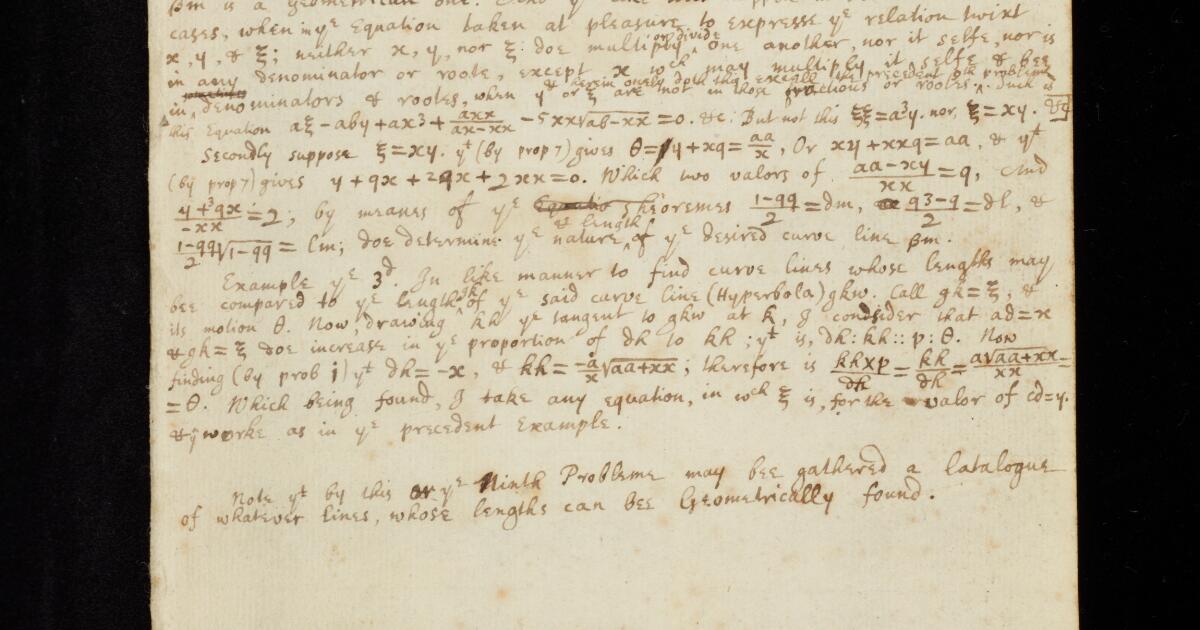 βm is a Geometricall one.
cases, when in yᵉ Equation taken at pleasure to expresse yᵉ relation twixt
x, y, & ξ; neither x, y, nor ξ doe multiply or divide one another, nor it selfe, nor is
in any denominator or roote, except x wᶜʰ may multiply it selfe & bee
in denominators & rootes, when y or ξ are not in those fractions or rootes. herein onely doth this excell the precedent 9th probleme. Such is
this Equation aξ − aby + ax³ + axx/(ax−xx) − 5xx√(ab−xx) = 0. &c: But not this ξξ = a³y. nor, ξ = xy. &c
Secondly suppose ξ = xy. yᵗ (by prop 7) gives θ = y + xq = aa/x, Or xy + xxq = aa, & yᵗ
(by prop 7) gives y + qx + 2qx + 2xx = 0. Which two valors of (aa−xy)/xx = q, And
(y+3qx)/−xx = 2; by meanes of yᵉ Theoremes (1−qq)/2 = dm, (q3−q)/2 = dl, &
(1−qq)/2 √(1−qq) = lm; doe determine yᵉ nature & length of yᵉ desired curve line βm.
Example yᵉ 3ᵈ. In like manner to find curve lines whose lengths may
bee compared to yᵉ length gk of yᵉ said curve line (Hyperbola) gkw. Call gk = ξ; &
its motion θ. Now, drawing kh yᵉ tangent to gkw at k, I consider that ad = x
& gk = ξ doe increase in yᵉ proportion of dh to kh; yᵗ is, dh : kh :: p : θ. Now
finding (by prob 1) yᵗ dh = −x, & kh = −a/x √(aa+xx); therefore is (kh×p)/dh = kh/dh = a√(aa+xx)/xx =
= θ. Which being found, I take any equation, in wᶜʰ ξ is, for the valor of cd = y.
& yn worke as in yᵉ precedent Example.
Note yᵗ by this or yᵉ Ninth Probleme may bee gathered a Catalogue
of whatever lines, whose lengths can bee Geometrically found.